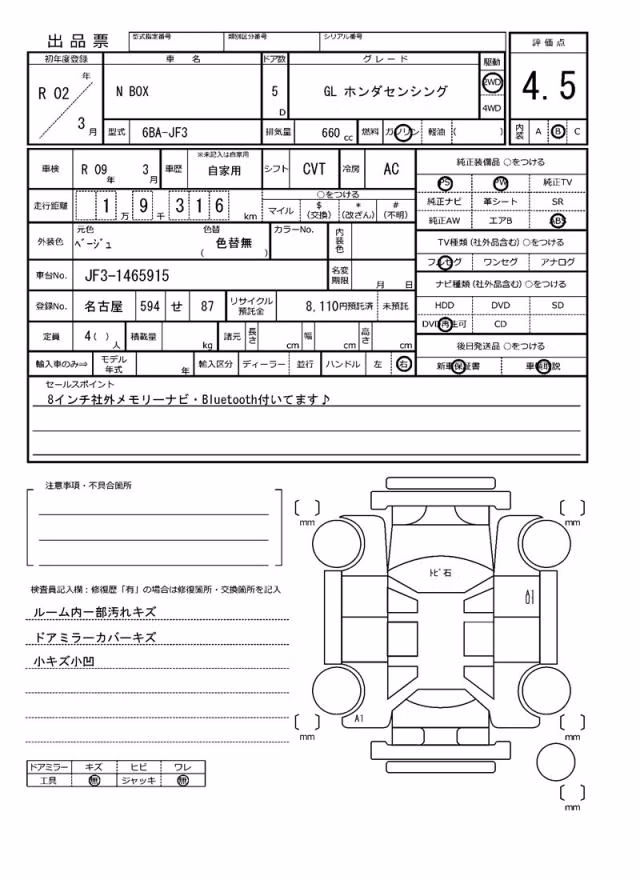 出品票
型式指定番号 類別区分番号 シリアル番号
初年度登録 車名 ドア数 グレード 駆動 評価点
R 02 年 3 月
N BOX 5 D GL ホンダセンシング 2WD 4WD
4.5
型式 6BA-JF3 排気量 660 cc 燃料 ガソリン 軽油 ( ) 内装 A B C
車検 R 09 年 3 月 車歴 ※未記入は自家用 自家用 シフト CVT 冷房 AC
走行距離 1 万 9 千 3 1 6 km
○をつける
マイル $ (交換) * (改ざん) # (不明)
外装色 元色 ベージュ 色替 色替無 ( ) カラーNo. 内装色
車台No. JF3-1465915 名変期限 月 日
登録No. 名古屋 594 せ 87 リサイクル預託金 8,110円預託済 未預託
定員 4( ) 人 積載量 kg 諸元 長さ cm 幅 cm 高さ cm
輸入車のみ⇒ モデル年式 年 輸入区分 ディーラー 並行 ハンドル 左 右
純正装備品 ○をつける
PS PW 純正TV
純正ナビ 革シート SR
純正AW エアB ABS
TV種類 (社外品含む) ○をつける
フルセグ ワンセグ アナログ
ナビ種類 (社外品含む) ○をつける
HDD DVD SD
DVD再生可 CD
後日発送品 ○をつける
新車保証書 車輌取説
セールスポイント
8インチ社外メモリーナビ・Bluetooth付いてます♪
注意事項・不具合箇所
検査員記入欄：修復歴「有」の場合は修復箇所・交換箇所を記入
ルーム内一部汚れキズ
ドアミラーカバーキズ
小キズ小凹
ドアミラー キズ ヒビ ワレ
工具 無 ジャッキ 無
mm mm
トビ石
A1
01
A1
mm mm
mm